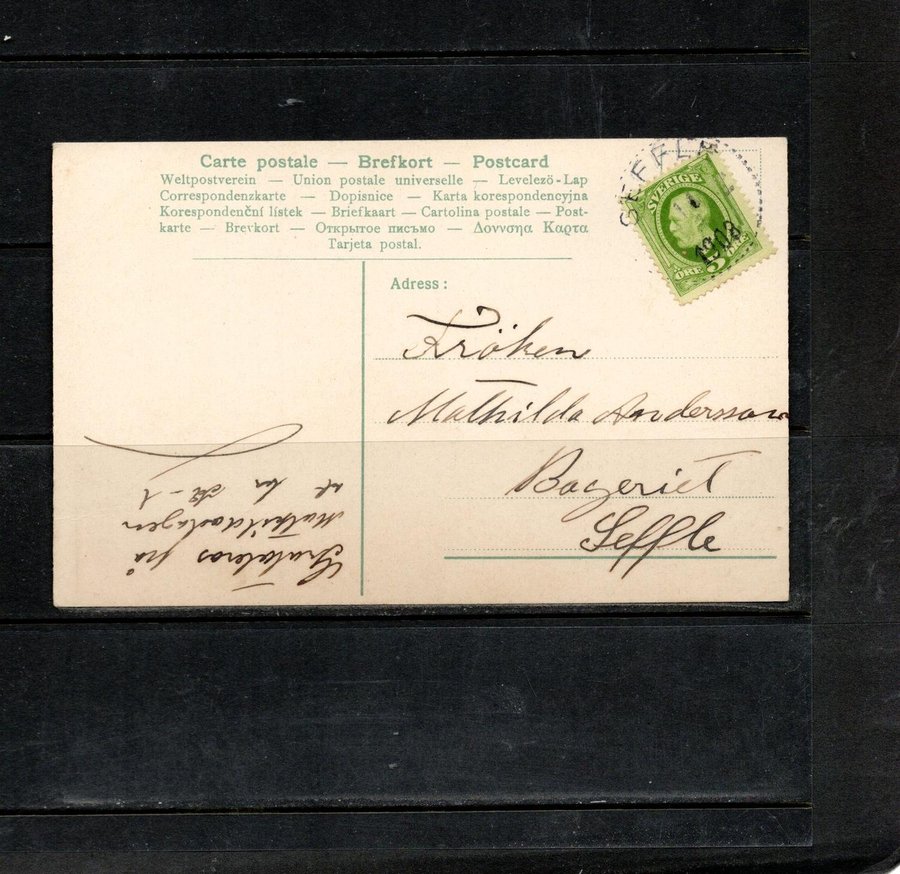 Carte postale — Brefkort — Postcard
Weltpostverein — Union postale universelle — Levelező-Lap
Correspondenzkarte — Dopisnice — Karta korespondencyjna
Korespondenční lístek — Briefkaart — Cartolina postale — Post-
karte — Brevkort — Открытое письмо — Δονυσηα Καρτα
Tarjeta postal.
SEFFLE
SVERIGE
1908
5
ÖRE
Adress:
Fröken
Mathilda Andersson
Bageriet
Seffle
Gratuleras på
Mathildadagen